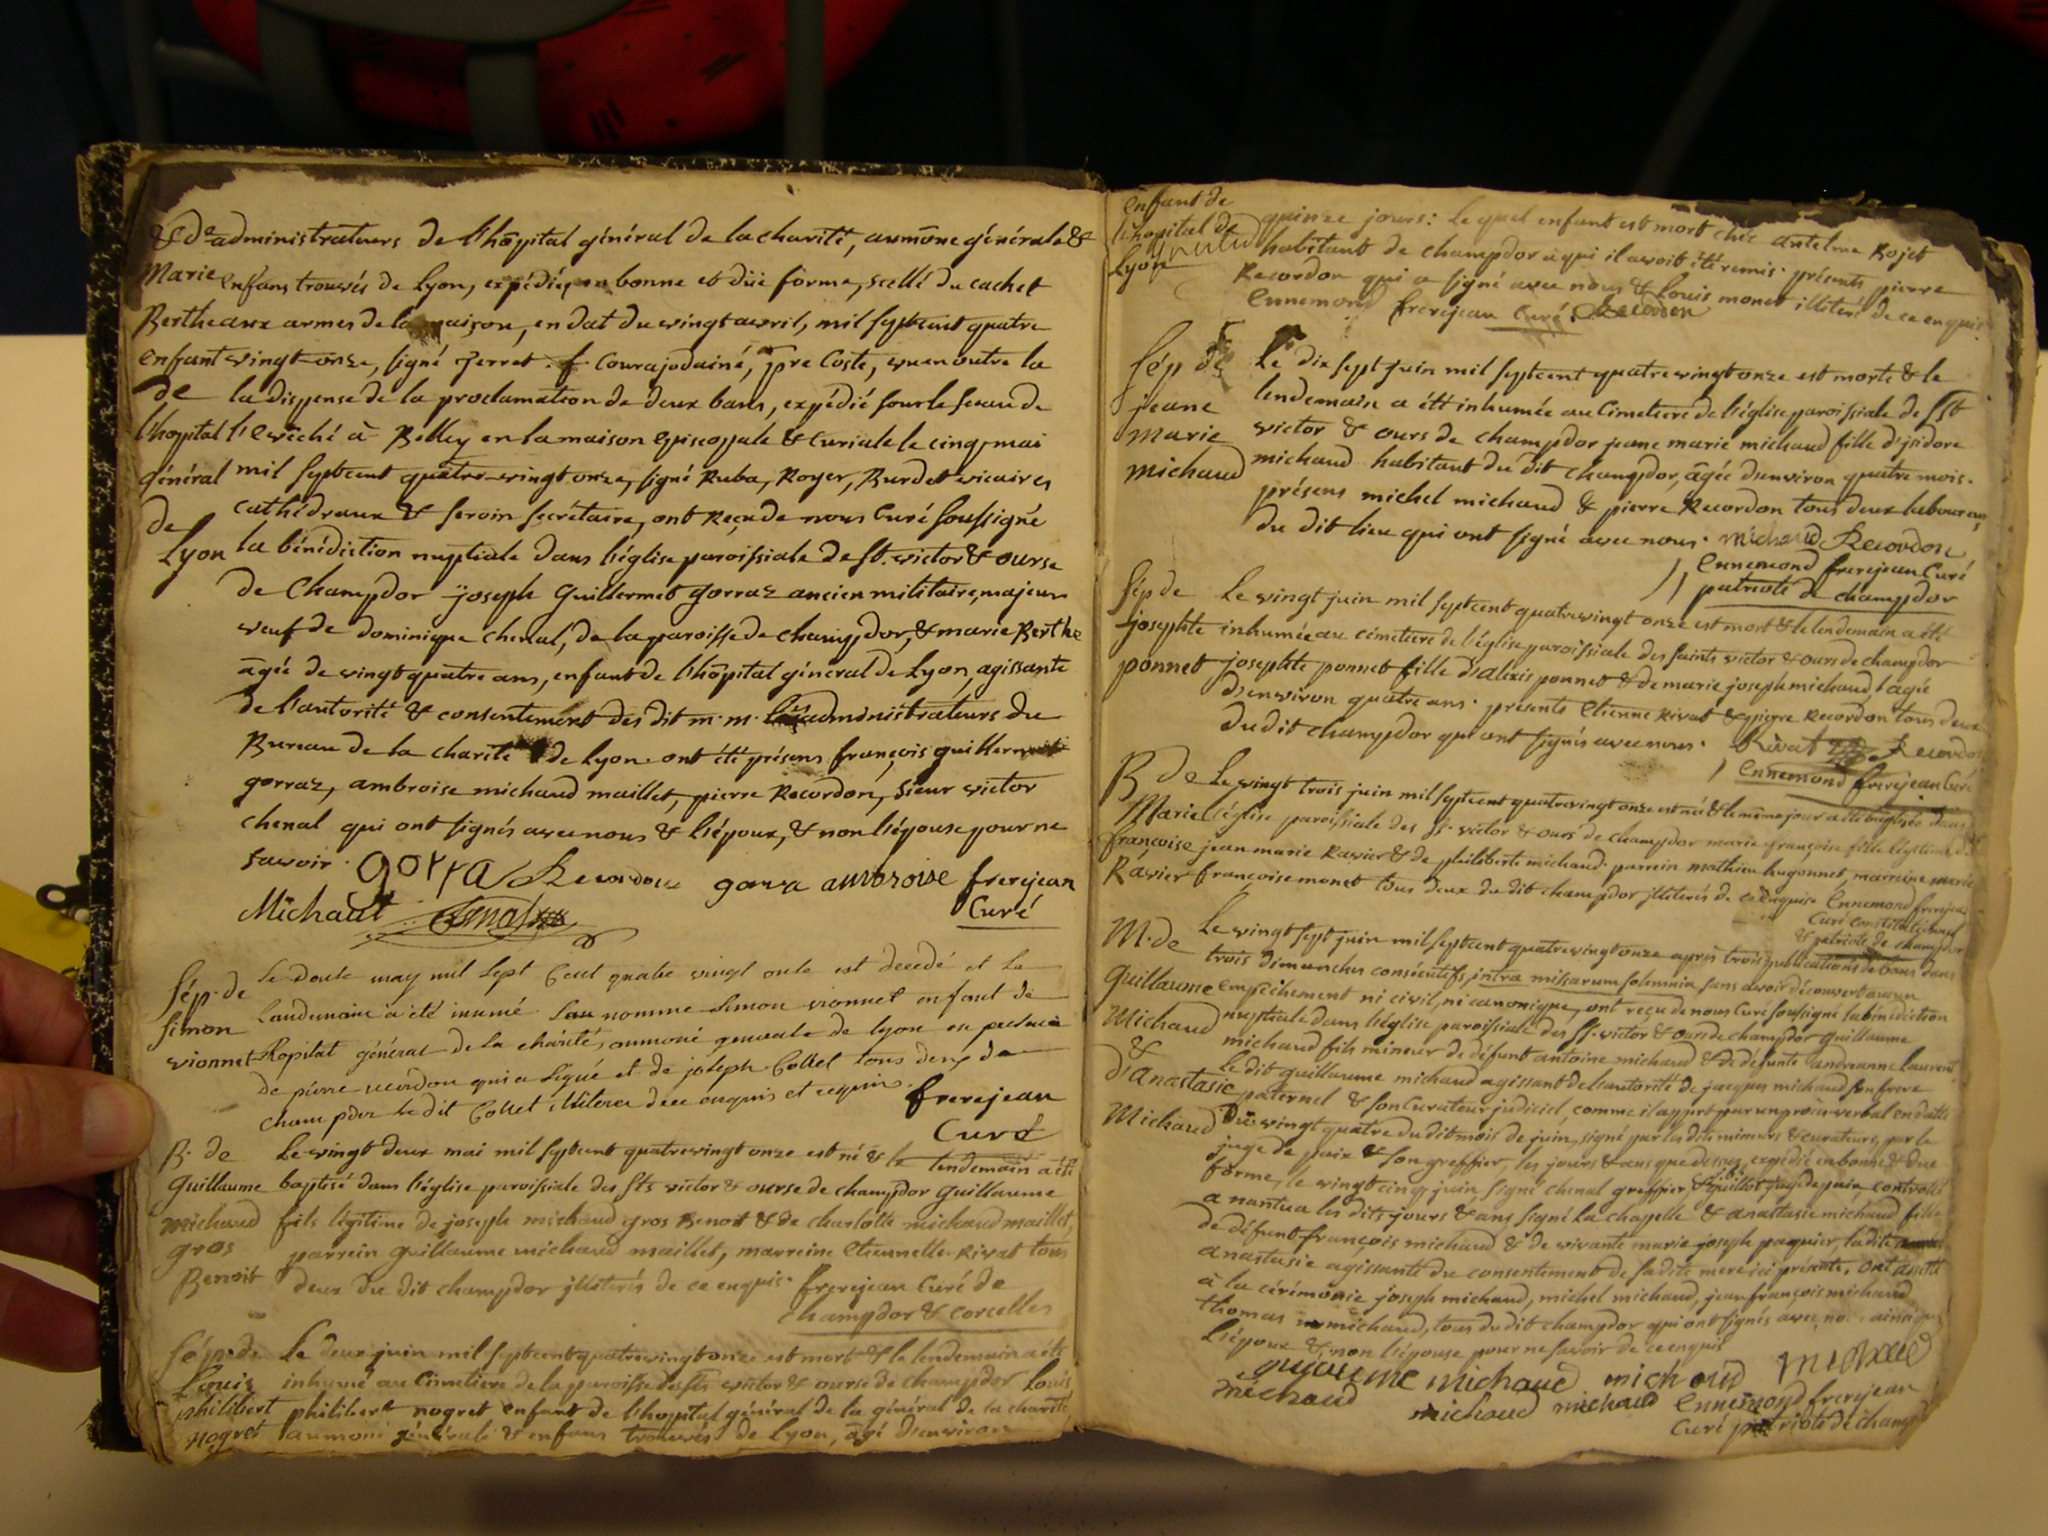 & de administrateurs de l'hôpital général de la charité, aumône générale &
Marie enfans trouvés de Lyon, expédiés en bonne et düe forme, scellé du cachet
Berthe aux armes de la maison, en dat du vingt avril, mil septcent quatre
enfant vingt-onze, signé Perret, Courajodainé, Coste, vu en outre la
de la dispense de la proclamation de deux bans, expédié sous le sceau de
l'hopital l'evêché à Belley en la maison episcopale & curiale le cinq mai
général mil septcent quatre-vingt onze, signé Ruba, Royer, Burdet vicaires
de cathédraux & seroin secrétaire, ont reçu de nous Curé soussigné
Lyon la bénédiction nuptiale dans l'église paroissiale de St. victor & ourse
de Champdor joseph Guillermet gorraz ancien militaire, majeur
veuf de dominique chenal, de la paroisse de champdor, & marie Berthe
âgée de vingt quatre ans, enfant de l'hôpital géneral de Lyon, agissante
de l'autorité & consentement des dit m. m. administrateurs du
Bureau de la charité de Lyon. ont été présens françois guillermet
gorraz, ambroise michaud maillet, pierre Recordon, sieur victor
chenal qui ont signés avec nous & l'époux, & non l'épouse pour ne
savoir. gorra Recordon gorra ambroise frerejean
Michaut Chenal Curé
Sép. de Le douze may mil sept cent quatre vingt onze est decedé et le
Simon landemain a été inumé nomme simon vionnet enfant de
vionnet l'hopital général de la charité, aumoné generale de lyon en presence
de pierre recordon qui a signé et de joseph Collet tous deux de
champdor le dit Collet illiteré de ce enquis et requis. frerejean
Curé
B. de Le vingt deux mai mil septcent quatrevingt onze est né & le lendemain a été
Guillaume baptisé dans l'église paroissiale des sts victor & ourse de champdor guillaume
michaud fils légitime de joseph michaud gros Benoit & de charlotte michaud maillet,
gros parrein guillaume michaud maillet, marreine etiennette Rivat tous
Benoit deux du dit champdor illiterés de ce enquis. frerejean Curé de
champdor & corcelles
Sép. de Le deux juin mil septcent quatrevingt onze est mort & le lendemain a été
Louis inhumé au Cimetiere de la paroisse de sts victor & ourse de champdor Louis
philibert philibert nogret enfant de l'hopital général de la général de la charité
nogret aumône générale & enfans trouvés de Lyon, âgé d'environ
enfant de quinze jours: le quel enfant est mort chés antelme Rojet
l'hopital de habitant de champdor à qui il avoit été remis. présents pierre
Lyon Recordon qui a signé avec nous & Louis monet illiteré de ce enquis
Ennemond frerejean Curé. Recordon
Sép de Le dix sept juin mil septcent quatre vingt onze est morte & le
jeane lendemain a été inhumée au Cimetiere de l'église paroissiale de Sst
marie victor & ours de champdor jeane marie michaud fille d'isidore
michaud michaud habitant du dit champdor, âgée d'environ quatre mois.
présens michel michaud & pierre Recordon tous deux laboureurs
du dit lieu qui ont signé avec nous. michaud Recordon
Ennemond frerejean Curé
patriote de champdor
Sép de Le vingt juin mil septcent quatrevingt onze est mort & le lendemain a été
josephte inhumée au cimetiere de l'église paroissiale des saints victor & ours de champdor
ponnet josephte ponnet fille d'alexis ponnet & de marie joseph michaud, agée
d'environ quatre ans. présents Etienne Rivat & pierre Recordon tous deux
du dit champdor qui ont signés avec nous. Rivat Recordon
Ennemond frerejean Curé
B de Le vingt trois juin mil septcent quatrevingt onze est née & le même jour a été baptisée dans
Marie l'église paroissiale des ss. victor & ours de champdor marie françoise fille légitime de
françoise jean marie Ravier & de philiberte michaud. parrein mathieu hugonnet, marreine marie
Ravier françoise monet tous deux du dit champdor illiterés de ce enquis. Ennemond frerejean
Curé constitutionel
& patriote de champdor
M. de Le vingt sept juin mil septcent quatrevingt onze après trois publications de bans dans
trois dimanches consécutifs, intra missarum solemnia sans avoir découvert aucun
Guillaume empêchement ni civil, ni canonique, ont reçu de nous Curé soussigné la bénédiction
Michaud nuptiale dans l'église paroissiale des ss. victor & ours de champdor guillaume
& michaud fils mineur de défunt antoine michaud & de défunte andréanne laurent
d'anastasie Le dit guillaume michaud agissant de l'autorité de jacques michaud son frere
Michaud paternel & son Curateur judiciel, comme il appert par un procès verbal en datte
Du vingt quatre du dit mois de juin, signé par les dits mineurs & curateurs, par le
juge de paix & son greffier, les jours & ans que dessus, expédié en bonne & due
forme, le vingt cinq juin, signé chenal greffier, Guillot juge de paix, controllé
a nantua les dits jours & ans signé La chapelle & anastasie michaud fille
de défunt françois michaud & de vivante marie joseph paquier, la dite
anastasie agissante du consentement de sa dite mere ici présente. ont assisté
à la cérémonie joseph michaud, michel michaud, jean françois michaud
thomas michaud, tous du dit champdor qui ont signés avec nous ainsi que
l'époux & non l'épouse pour ne savoir de ce enquis
guiaume michaud michaud michaud
michaud michaud michaud Ennemond frerejean
Curé patriote de champdor